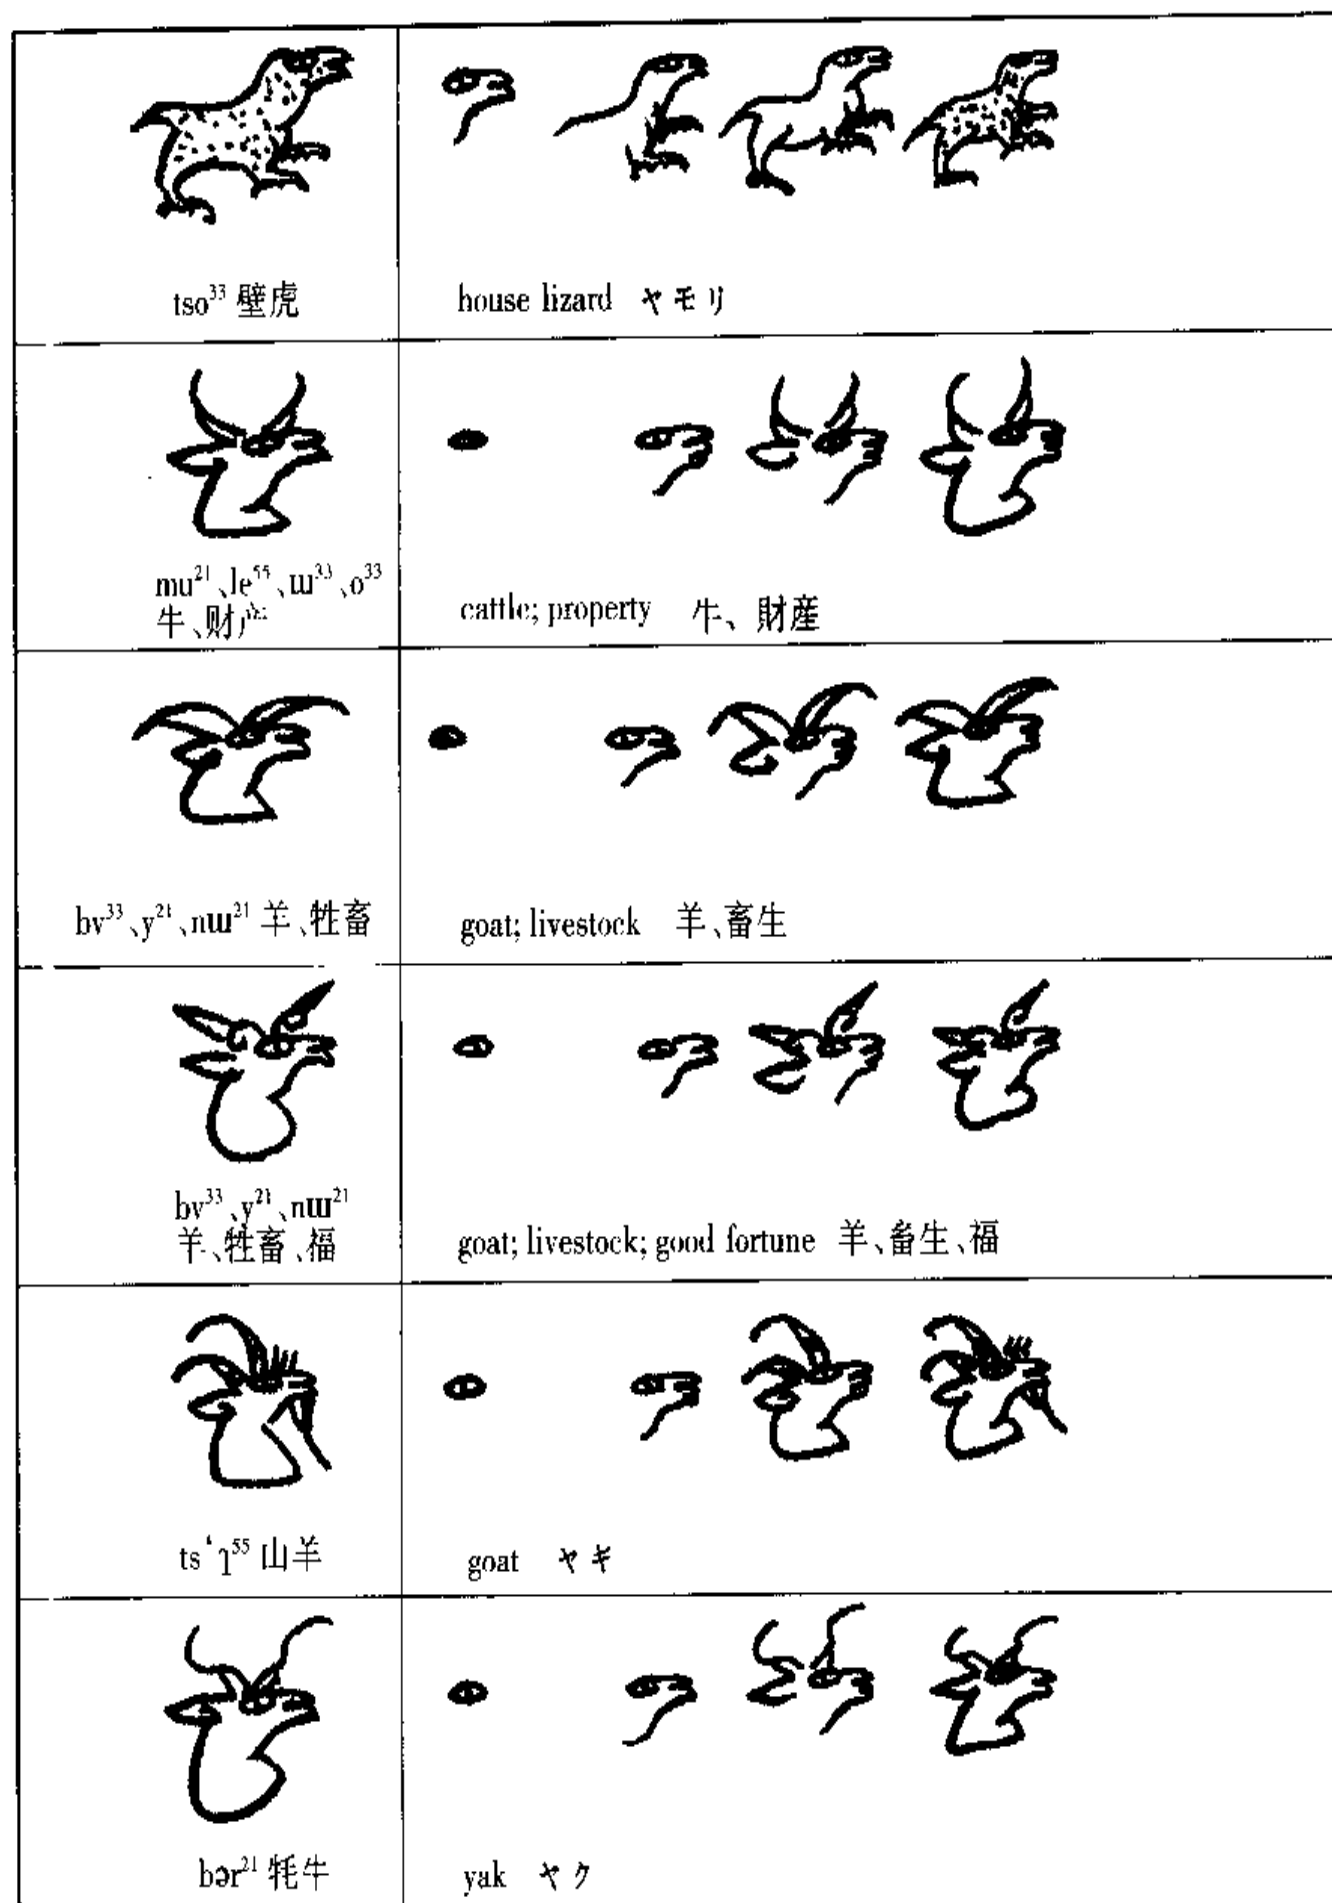 tso³³ 壁虎
house lizard ヤモリ
mu²¹、le⁵⁵、ɯ³³、o³³
牛、财产
cattle; property 牛、財産
bv³³、y²¹、nɯ²¹ 羊、牲畜
goat; livestock 羊、畜生
bv³³、y²¹、nɯ²¹
羊、牲畜、福
goat; livestock; good fortune 羊、畜生、福
ts‘ʅ⁵⁵ 山羊
goat ヤギ
bər²¹ 牦牛
yak ヤク